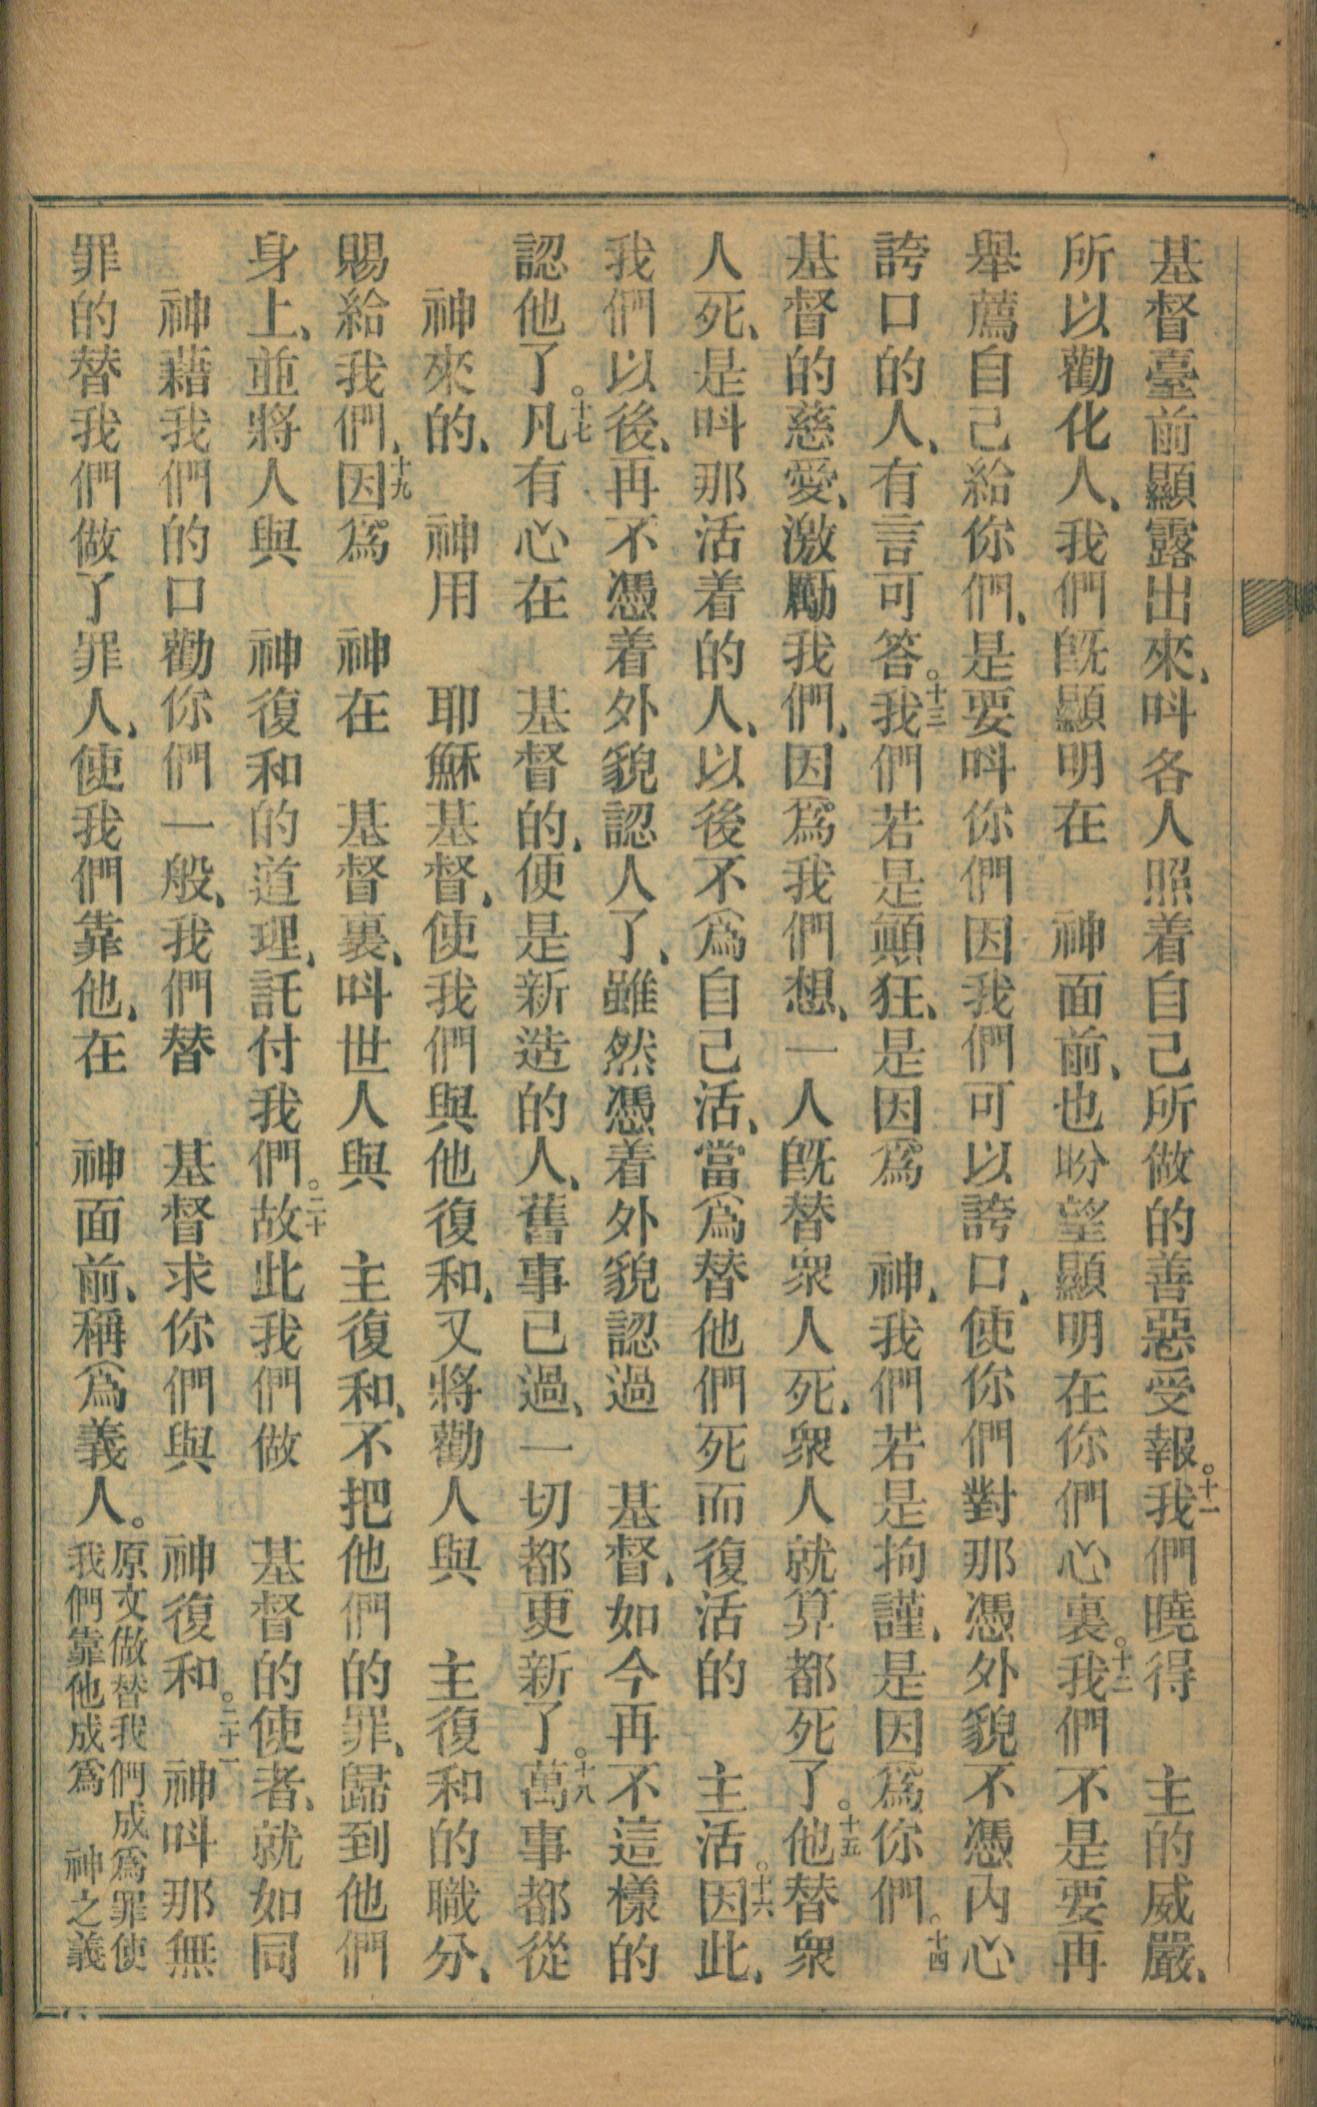 基督臺前顯露出來、呌各人照着自己所做的善惡受報。十一我們曉得　主的威嚴、
所以勸化人、我們旣顯明在　神面前、也盼望顯明在你們心裏。十二我們不是要再
舉薦自己給你們、是要呌你們因我們可以誇口、使你們對那憑外貌不憑內心
誇口的人、有言可答。十三我們若是顚狂、是因爲　神、我們若是拘謹、是因爲你們。十四
基督的慈愛、激勵我們、因爲我們想、一人旣替衆人死、衆人就算都死了。十五他替衆
人死、是呌那活着的人、以後不爲自己活、當爲替他們死而復活的　主活。十六因此、
我們以後、再不憑着外貌認人了、雖然憑着外貌認過　基督、如今再不這樣的
認他了。十七凡有心在　基督的、便是新造的人、舊事已過、一切都更新了。十八萬事都從
神來的、　神用　耶穌基督、使我們與他復和、又將勸人與　主復和的職分、
賜給我們、十九因爲　神在　基督裏、呌世人與　主復和、不把他們的罪、歸到他們
身上、並將人與　神復和的道理、託付我們。二十故此我們做　基督的使者、就如同
神藉我們的口勸你們一般、我們替　基督求你們與　神復和。二十一　神呌那無
罪的替我們做了罪人、使我們靠他、在　神面前、稱爲義人。
原文做替我們成爲罪使
我們靠他成爲　神之義